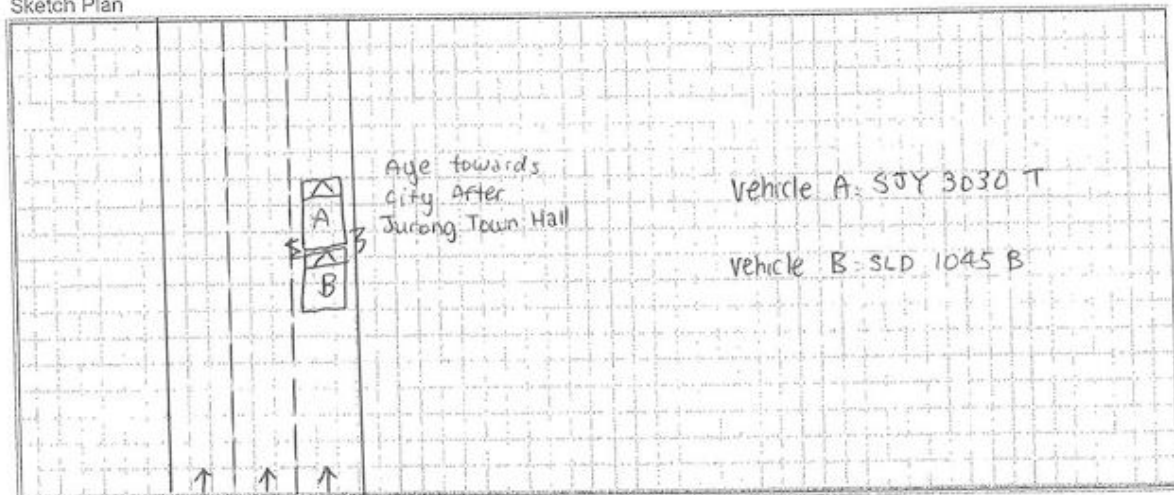 Sketch Plan
Aye towards
city After
Jurong Town Hall
A
B
vehicle A: SJY 3030 T
vehicle B: SLD 1045 B